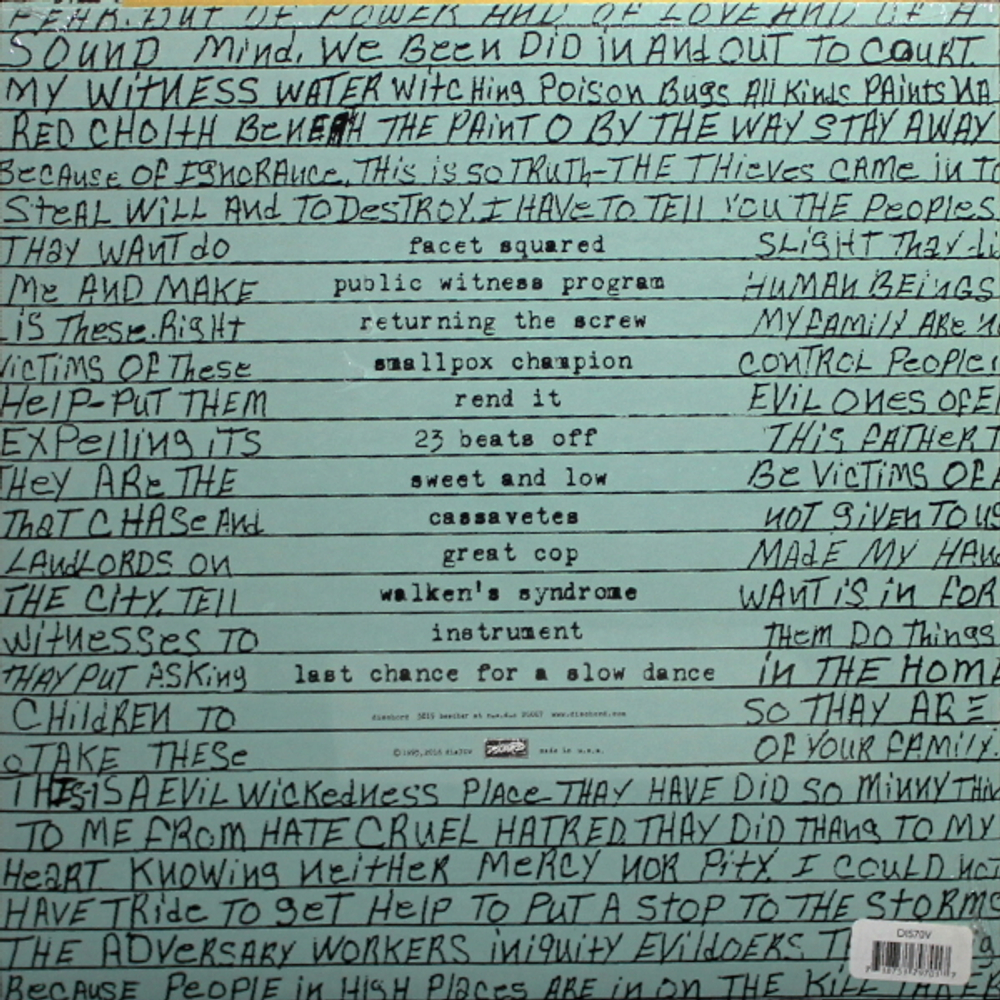 FEAR. BUT OF POWER AND OF LOVE AND OF A
SOUND Mind. We Been DiD in And OUT TO COURT.
MY WiTNESS WATER WitcHing Poison Bugs All Kinds PAints
RED CHOITH BeneAH THE PAinT O BY THE WAY STAY AWAY
BecAuse OF IgnoRAnce. THis is so TRUTH-THE THieves CAME in
STeAL WiLL And TO DesTROY. I HAVe TO TEll YOU THE PeoPles
THAY WANT do facet squared SLiGHT THAY
Me AND MAKE public witness program HUMAN BEiNGS
iS These. Right returning the screw MY FAMilY ARe
VicTiMS OF These smallpox champion CONTROL PeoPle
HElP-PUT THEM rend it EViL Ones OF
EXPelling iTS 23 beats off THis FATHeR
THeY ARe THE sweet and low Be VicTiMS OF
THAT CHASe And cassavetes NOT GiVEN TO US
LANdLORDS ON great cop MADE MY
THE CiTY. TEll walken's syndrome WANT iS in FOR
WiTNesses TO instrument THEM DO THings
THAY PUT ASKing last chance for a slow dance in THE HOME
CHildREN TO dischord 3819 beecher st n.w. d.c. 20007 www.dischord.com SO THAY ARE
TAKE THESe ©1993, 2014 dis70V DISCHORD made in u.s.a. OF YOUR FAMilY.
THIS-iS A EViL WicKedNess PlAce THAY HAVE DiD SO MiNNY
TO ME FROM HATE CRUEL HATRED. THAY DiD THAng TO MY
HeART KNOWing neiTHER MeRCY NOR PiTY. I COULD noT
HAVE TRide TO geT HElP TO PUT A STOP TO THE STORMS
THE ADVeRSARY WORKERS iniquity EVildOERS.
DIS70V
BecAUSE PeoPLE in HIGH PlAces ARE in on THE Kill